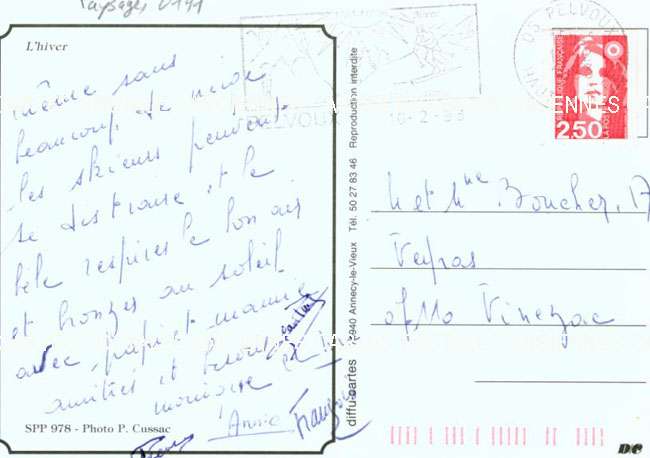 Paysages
L'hiver
même sans
beaucoup de neige
les skieurs peuvent
se distraire et le
bébé respirer le bon air
et bronzer au soleil
avec papi et mamie
amitiés et
monique et
Annie François
SPP 978 - Photo P. Cussac
diffu-cartes 74940 Annecy-le-Vieux Tél. 50 27 83 46 Reproduction interdite
PELVOUX 16-2-93
05 PELVOUX
REPUBLIQUE FRANÇAISE
2,50
LA POSTE
M et Mme Boucher
07110 Vinezac
DC
CARTES POSTALES ANCIENNES